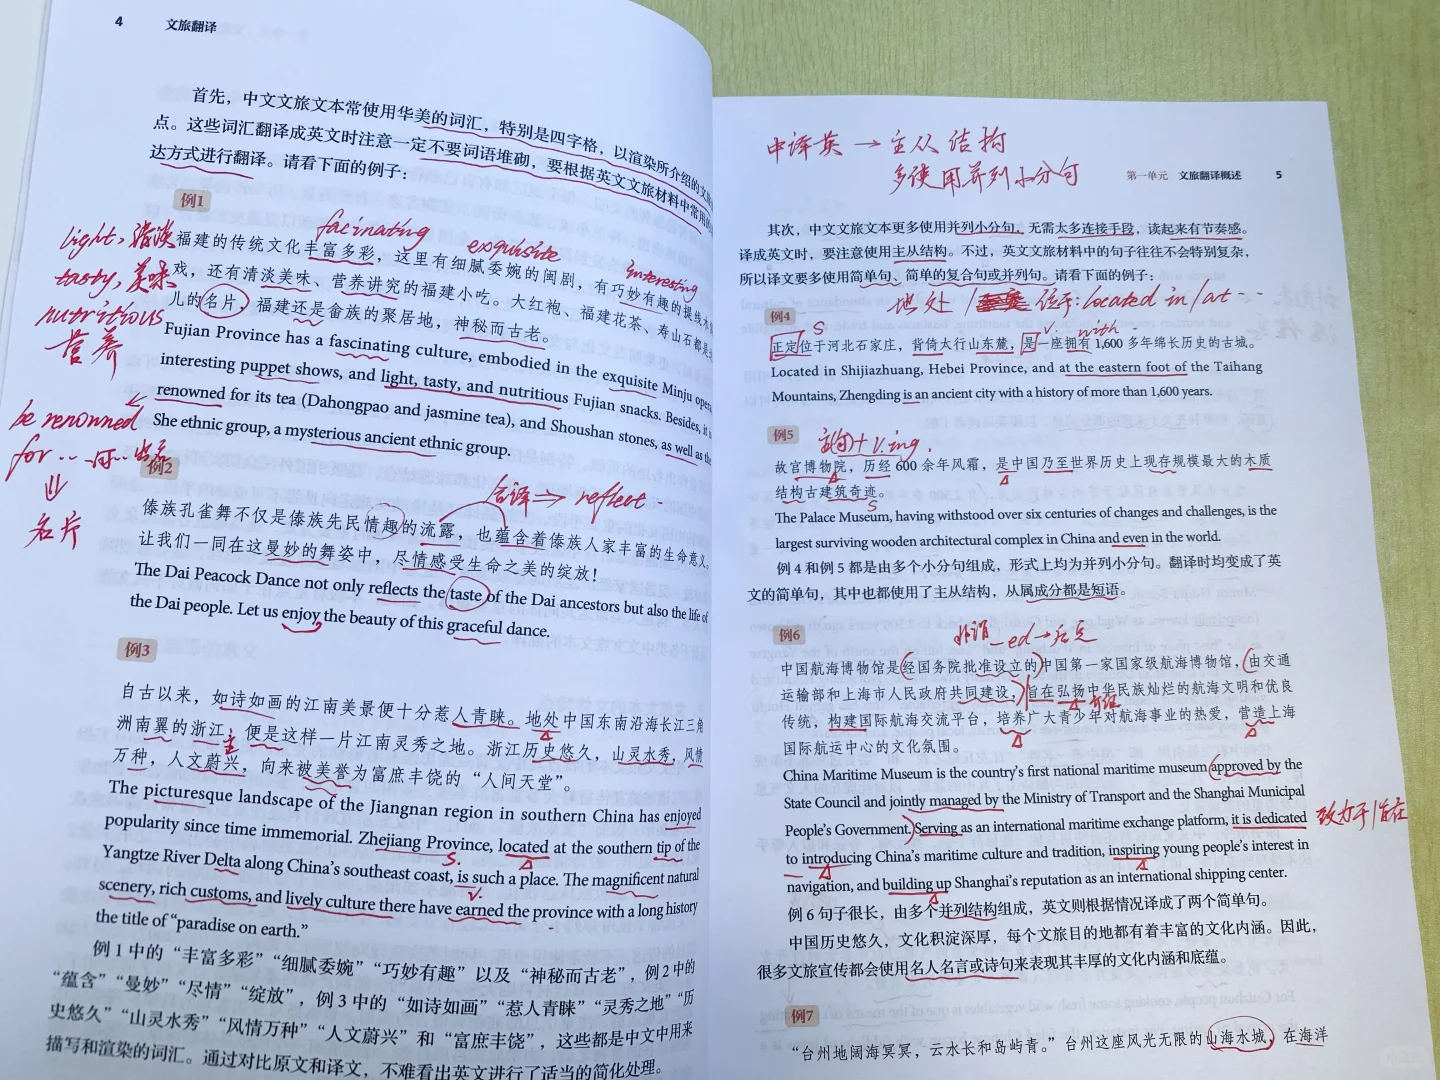 4 文旅翻译
首先，中文文旅文本常使用华美的词汇，特别是四字格，以渲染所介绍的文
点。这些词汇翻译成英文时注意一定不要词语堆砌，要根据英文文旅材料中常用的
达方式进行翻译。请看下面的例子：
例1
facinating
exquisite
interesting
light, 清淡
tasty, 美味
nutritious
营养
福建的传统文化丰富多彩，这里有细腻委婉的闽剧，有巧妙有趣的提线木
戏，还有清淡美味、营养讲究的福建小吃。大红袍、福建花茶、寿山石都是
儿的名片，福建还是畲族的聚居地，神秘而古老。
Fujian Province has a fascinating culture, embodied in the exquisite Minju opera
interesting puppet shows, and light, tasty, and nutritious Fujian snacks. Besides, it i
renowned for its tea (Dahongpao and jasmine tea), and Shoushan stones, as well as the
She ethnic group, a mysterious ancient ethnic group.
be renowned
for ...
名片
例2
reflect
傣族孔雀舞不仅是傣族先民情趣的流露，也蕴含着傣族人家丰富的生命意义。
让我们一同在这曼妙的舞姿中，尽情感受生命之美的绽放！
The Dai Peacock Dance not only reflects the taste of the Dai ancestors but also the life of
the Dai people. Let us enjoy the beauty of this graceful dance.
例3
自古以来，如诗如画的江南美景便十分惹人青睐。地处中国东南沿海长江三角
洲南翼的浙江，便是这样一片江南灵秀之地。浙江历史悠久，山灵水秀，风情
万种，人文蔚兴，向来被美誉为富庶丰饶的“人间天堂”。
主
The picturesque landscape of the Jiangnan region in southern China has enjoyed
popularity since time immemorial. Zhejiang Province, located at the southern tip of the
Yangtze River Delta along China's southeast coast, is such a place. The magnificent natural
scenery, rich customs, and lively culture there have earned the province with a long history
the title of “paradise on earth.”
S.
V.
例 1 中的“丰富多彩”“细腻委婉”“巧妙有趣”以及“神秘而古老”，例 2 中的
“蕴含”“曼妙”“尽情”“绽放”，例 3 中的“如诗如画”“惹人青睐”“灵秀之地”“历
史悠久”“山灵水秀”“风情万种”“人文蔚兴”和“富庶丰饶”，这些都是中文中用来
描写和渲染的词汇。通过对比原文和译文，不难看出英文进行了适当的简化处理。
中译英 → 主从结构
多使用并列小分句
第一单元 文旅翻译概述 5
其次，中文文旅文本更多使用并列小分句，无需太多连接手段，读起来有节奏感。
译成英文时，要注意使用主从结构。不过，英文文旅材料中的句子往往不会特别复杂，
所以译文要多使用简单句、简单的复合句或并列句。请看下面的例子：
地处 / 位于: located in/at ...
例4
S
V.
with
正定位于河北石家庄，背倚太行山东麓，是一座拥有 1,600 多年绵长历史的古城。
Located in Shijiazhuang, Hebei Province, and at the eastern foot of the Taihang
Mountains, Zhengding is an ancient city with a history of more than 1,600 years.
例5
主句 + V.ing.
故宫博物院，历经 600 余年风霜，是中国乃至世界历史上现存规模最大的木质
结构古建筑奇迹。
S
The Palace Museum, having withstood over six centuries of changes and challenges, is the
largest surviving wooden architectural complex in China and even in the world.
例 4 和例 5 都是由多个小分句组成，形式上均为并列小分句。翻译时均变成了英
文的简单句，其中也都使用了主从结构，从属成分都是短语。
例6
_ed →
中国航海博物馆是经国务院批准设立的中国第一家国家级航海博物馆，由交通
运输部和上海市人民政府共同建设，旨在弘扬中华民族灿烂的航海文明和优良
传统，构建国际航海交流平台，培养广大青少年对航海事业的热爱，营造上海
国际航运中心的文化氛围。
China Maritime Museum is the country's first national maritime museum approved by the
State Council and jointly managed by the Ministry of Transport and the Shanghai Municipal
People's Government. Serving as an international maritime exchange platform, it is dedicated
to introducing China's maritime culture and tradition, inspiring young people's interest in
navigation, and building up Shanghai's reputation as an international shipping center.
致力于/旨在
例 6 句子很长，由多个并列结构组成，英文则根据情况译成了两个简单句。
中国历史悠久，文化积淀深厚，每个文旅目的地都有着丰富的文化内涵。因此，
很多文旅宣传都会使用名人名言或诗句来表现其丰厚的文化内涵和底蕴。
例7
“台州地阔海冥冥，云水长和岛屿青。”台州这座风光无限的山海水城，在海洋